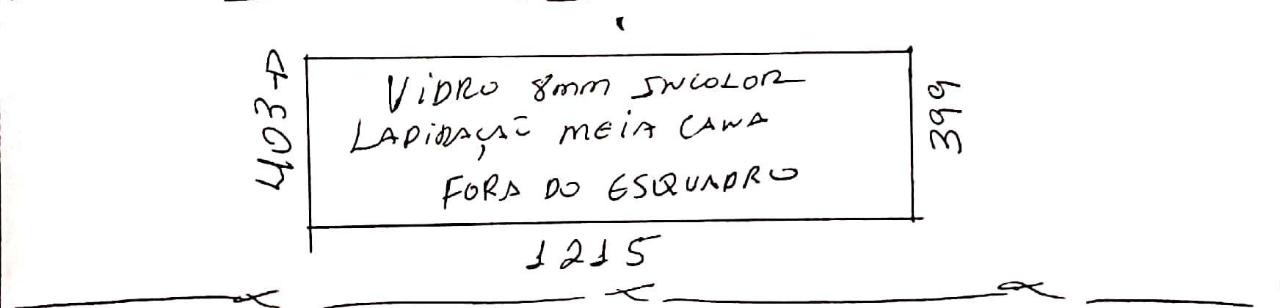 VIDRO 8mm INCOLOR
LAPIDAÇÃO MEIA CANA
FORA DO ESQUADRO
403
399
1215